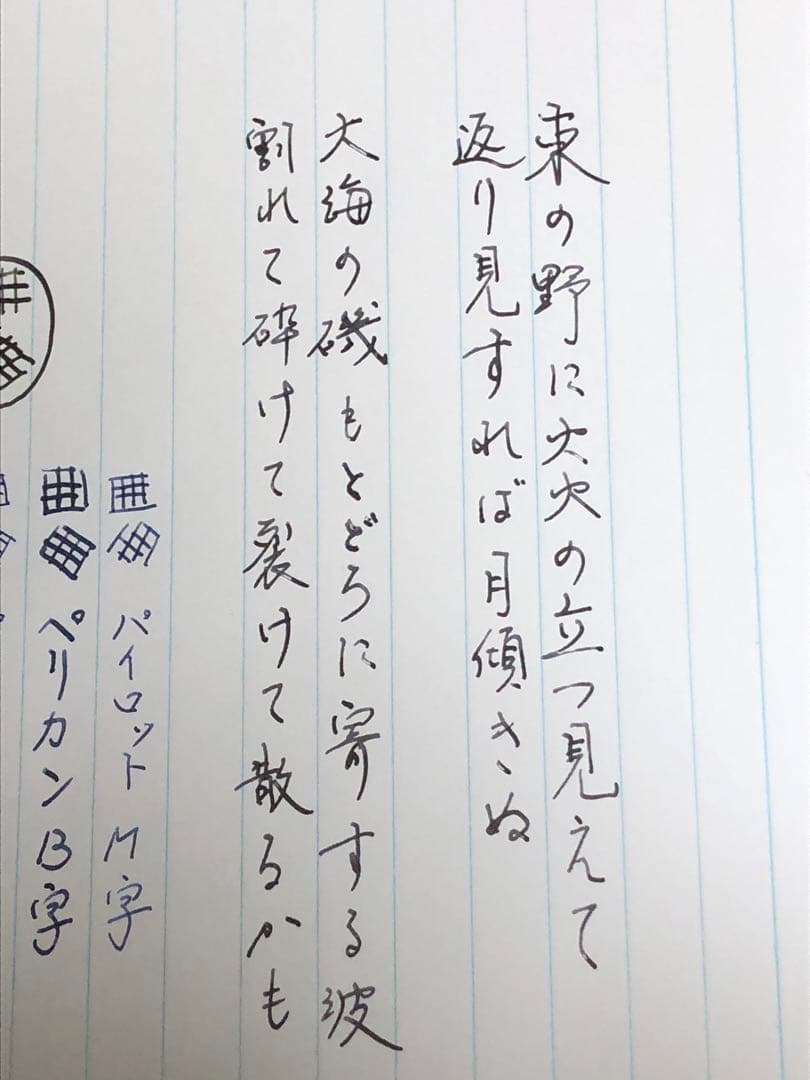 東の野に炎の立つ見えて
返り見すれば月傾きぬ
大海の磯もとどろに寄する波
割れて砕けて裂けて散るかも
パイロット M字
ペリカン B字